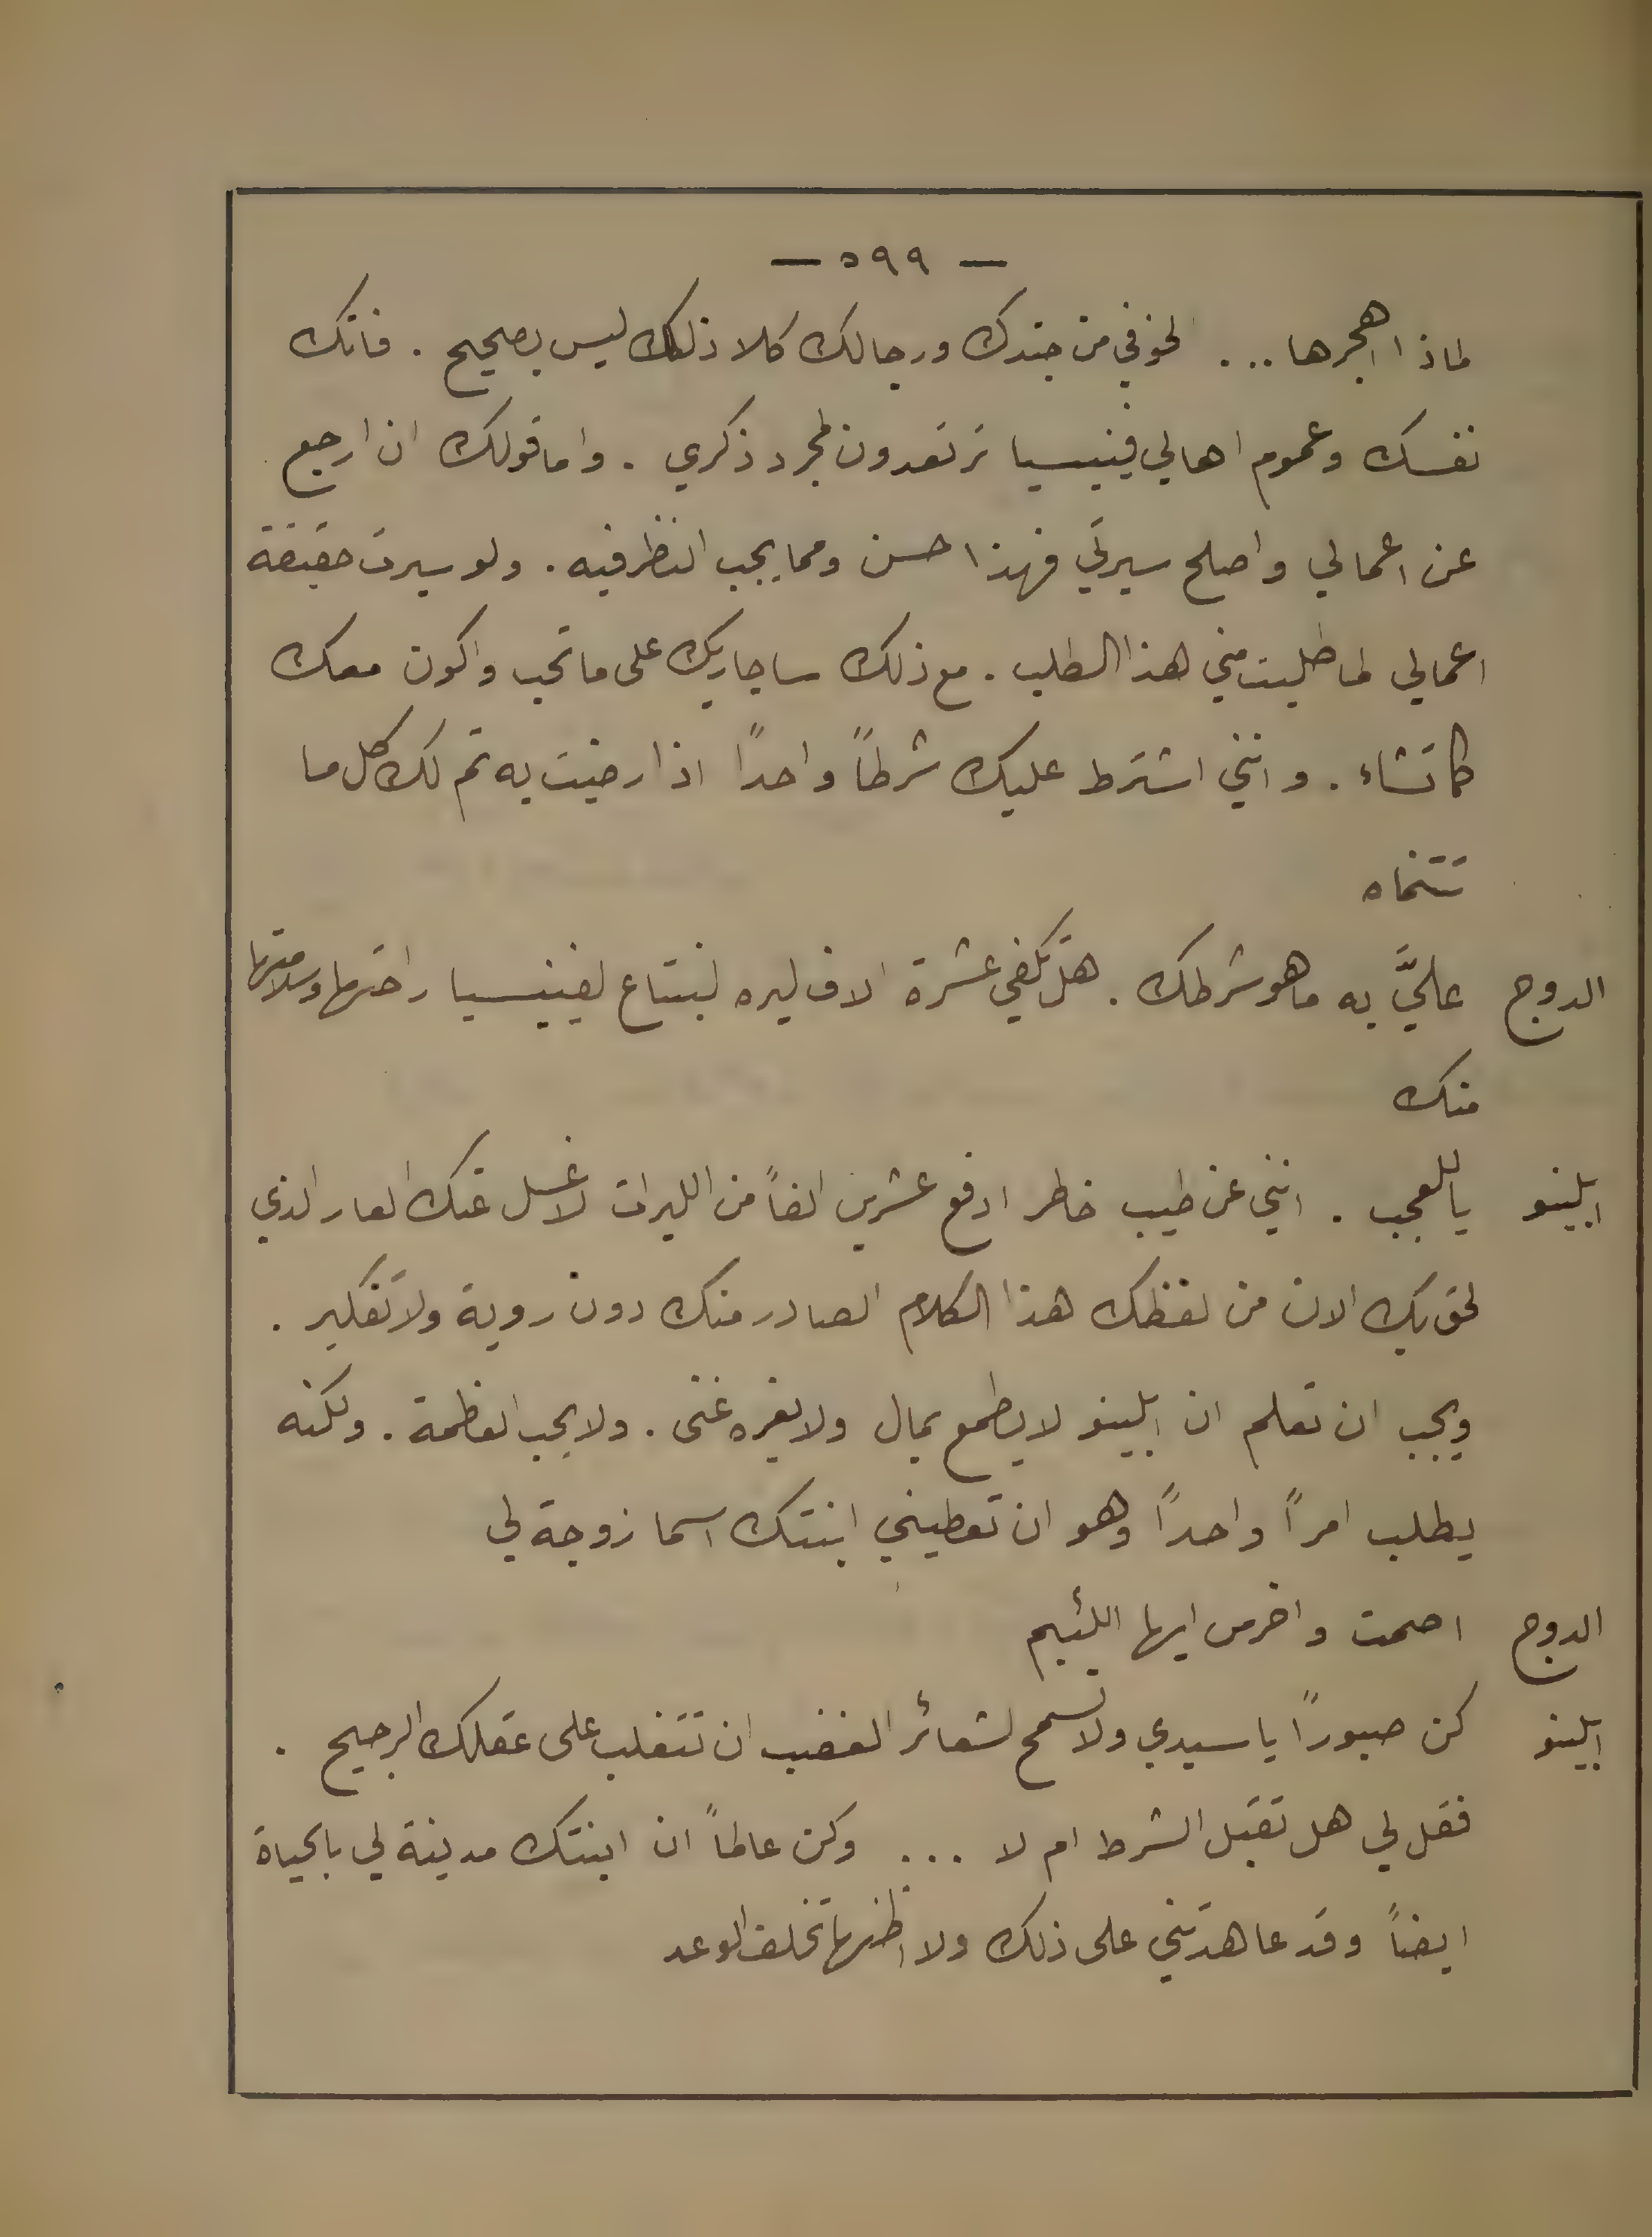 — ٥٩٩ —
لماذا اهجرها ... لخوفي من جندك ورجالك كلا ذلك ليس بصحيح . فانك
نفسك وعموم اهالي فينيسيا ترتعدون لمجرد ذكري . واما قولك ان ارجع
عن اعمالي واصلح سيرتي فهذا حسن ومما يجب النظر فيه . ولو سبرت حقيقة
اعمالي لما طلبت مني هذا الطلب . مع ذلك ساجاريك على ما تحب واكون معك
كما تشاء . وانني اشترط عليك شرطاً واحداً اذا رضيت به تم لك كل ما
تتمناه
الدوج عليَّ به ما هو شرطك . هل تكفي عشرة الاف ليره لنبتاع لفينيسيا راحتها وسلامتها
منك
ابلينو يا للعجب . انني عن طيب خاطر ادفع عشرين الفاً من الليرات لاغسل عنك العار الذي
لحق بك الان من لفظك هذا الكلام الصادر منك دون روية ولا تفكير .
ويجب ان تعلم ان ابلينو لا يطمع بمال ولا يغره غنى . ولا يحب العظمة . ولكنه
يطلب امراً واحداً وهو ان تعطيني ابنتك اسما زوجة لي
الدوج اصمت واخرس ايها اللئيم
ابلينو كن صبوراً يا سيدي ولا تسمح لشعائر الغضب ان تتغلب على عقلك الرجيح .
فقل لي هل تقبل الشرط ام لا ... وكن عالماً ان ابنتك مدينة لي بالحياة
ايضاً وقد عاهدتني على ذلك ولا اظنها تخلف الوعد